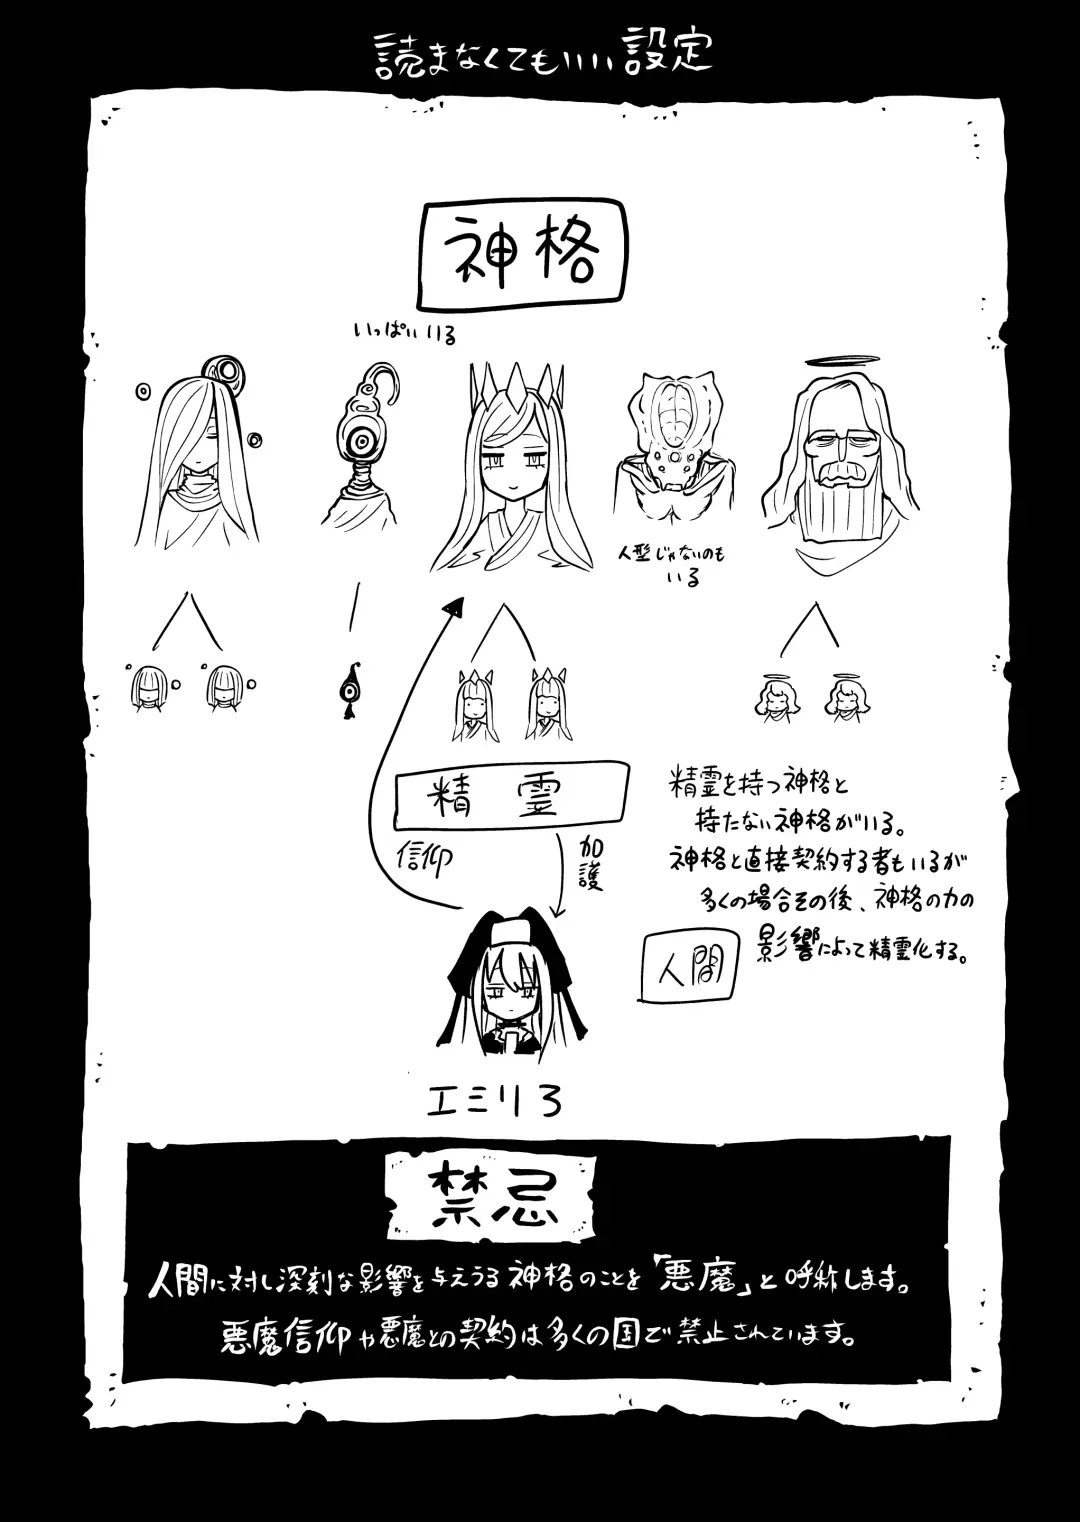 読まなくてもいい設定
神格
いっぱいいる
人型じゃないのも
いる
精霊
信仰
加護
精霊を持つ神格と
持たない神格がいる。
神格と直接契約する者もいるが
多くの場合その後、神格の力の
影響によって精霊化する。
人間
エミリろ
禁忌
人間に対し深刻な影響を与えうる神格のことを「悪魔」と呼称します。
悪魔信仰や悪魔との契約は多くの国で禁止されています。